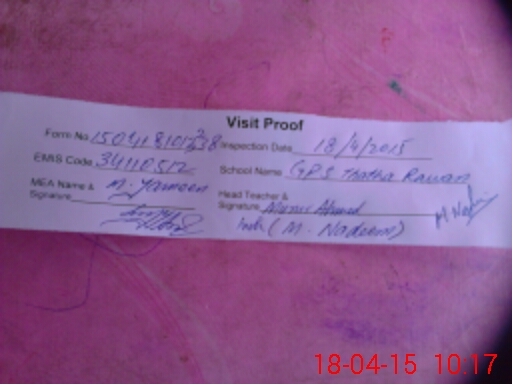 Visit Proof
Form No Inspection Date 18/4/2015
EMIS Code 34110512 School Name GPS Thatha Rawan
MEA Name & M. Yameen Head Teacher &
Signature Signature Ahmed
(M. Nadeem)
18-04-15 10:17